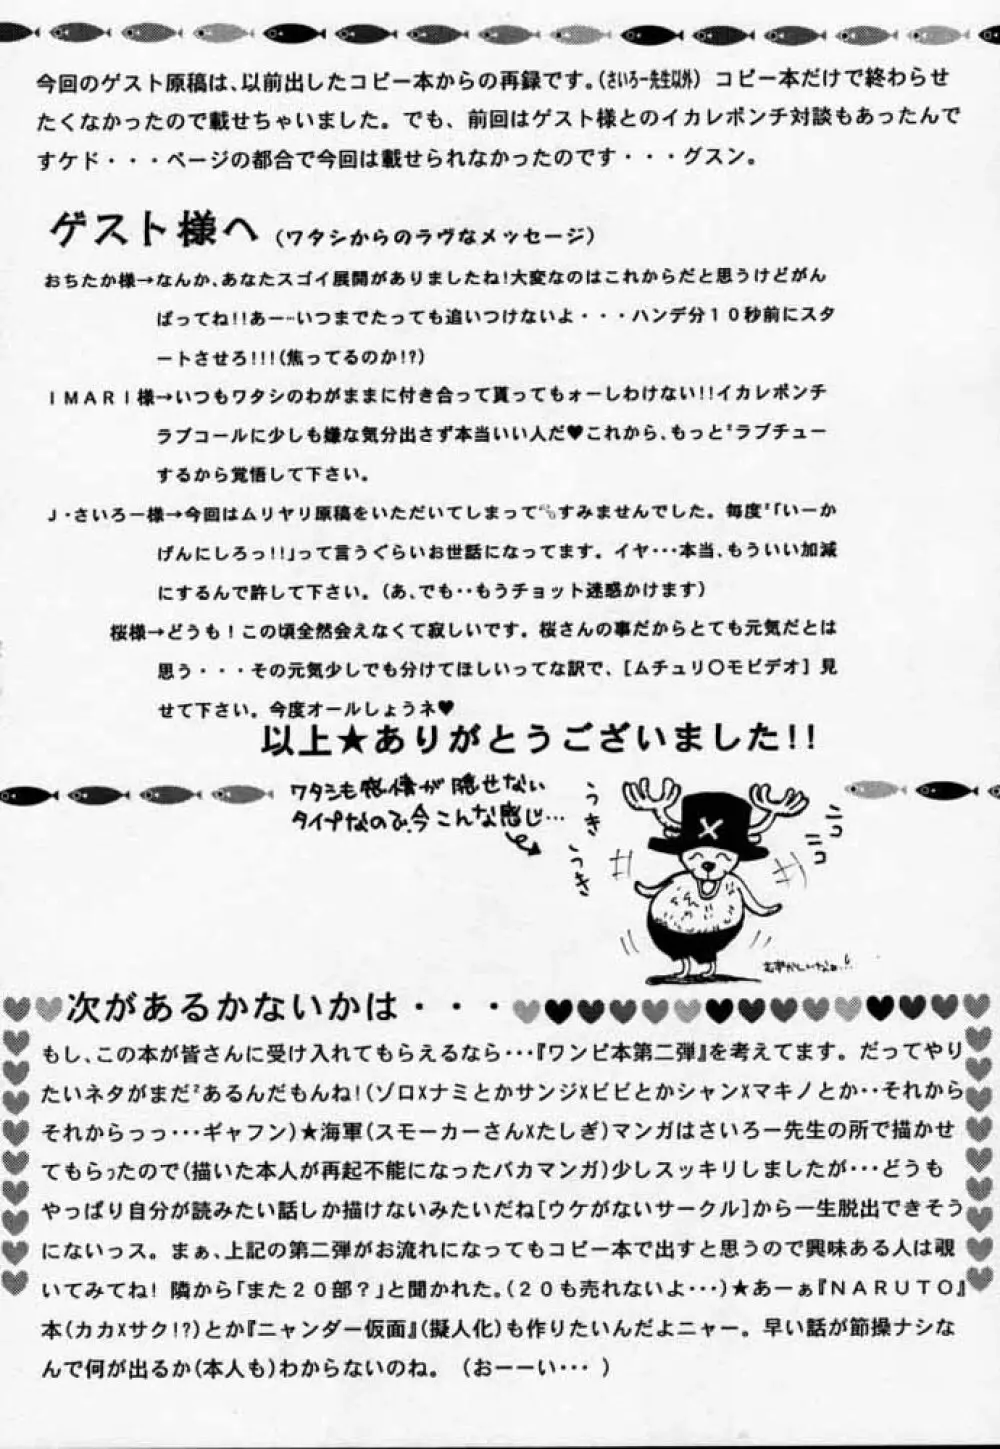 今回のゲスト原稿は、以前出したコピー本からの再録です。(さいろー先生以外) コピー本だけで終わらせ
たくなかったので載せちゃいました。でも、前回はゲスト様とのイカレポンチ対談もあったんで
すケド・・・ページの都合で今回は載せられなかったのです・・・グスン。
ゲスト様へ (ワタシからのラヴなメッセージ)
おちたか様→なんか、あなたスゴイ展開がありましたね!大変なのはこれからだと思うけどがん
ばってね!!あー…いつまでたっても追いつけないよ・・・ハンデ分10秒前にスタ
ートさせろ!!!(焦ってるのか!?)
IMARI様→いつもワタシのわがままに付き合って貰ってもォーしわけない!!イカレポンチ
ラブコールに少しも嫌な気分出さず本当いい人だ♥これから、もっと²ラブチュー
するから覚悟して下さい。
J・さいろー様→今回はムリヤリ原稿をいただいてしまって💦すみませんでした。毎度²「いーか
げんにしろっ!!」って言うぐらいお世話になってます。イヤ・・・本当、もういい加減
にするんで許して下さい。(あ、でも・・もうチョット迷惑かけます)
桜様→どうも!この頃全然会えなくて寂しいです。桜さんの事だからとても元気だとは
思う・・・その元気少しでも分けてほしいってな訳で、[ムチュリ〇モビデオ]見
せて下さい。今度オールしょうネ♥
以上★ありがとうございました!!
ワタシも感情が隠せない
タイプなので、今こんな感じ…
うき
うき
ニコ
ニコ
むずかしいなぁ!!
次があるかないかは・・・
もし、この本が皆さんに受け入れてもらえるなら・・・『ワンピ本第二弾』を考えてます。だってやり
たいネタがまだ²あるんだもんね!(ゾロxナミとかサンジxビビとかシャンxマキノとか・・それから
それからっっ・・・ギャフン)★海軍(スモーカーさんxたしぎ)マンガはさいろー先生の所で描かせ
てもらったので(描いた本人が再起不能になったバカマンガ)少しスッキリしましたが・・・どうも
やっぱり自分が読みたい話しか描けないみたいだね[ウケがないサークル]から一生脱出できそう
にないっス。まぁ、上記の第二弾がお流れになってもコピー本で出すと思うので興味ある人は覗
いてみてね! 隣から「また20部?」と聞かれた。(20も売れないよ・・・)★あーぁ『NARUTO』
本(カカxサク!?)とか『ニャンダー仮面』(擬人化)も作りたいんだよニャー。早い話が節操ナシな
んで何が出るか(本人も)わからないのね。 (おーーい・・・ )